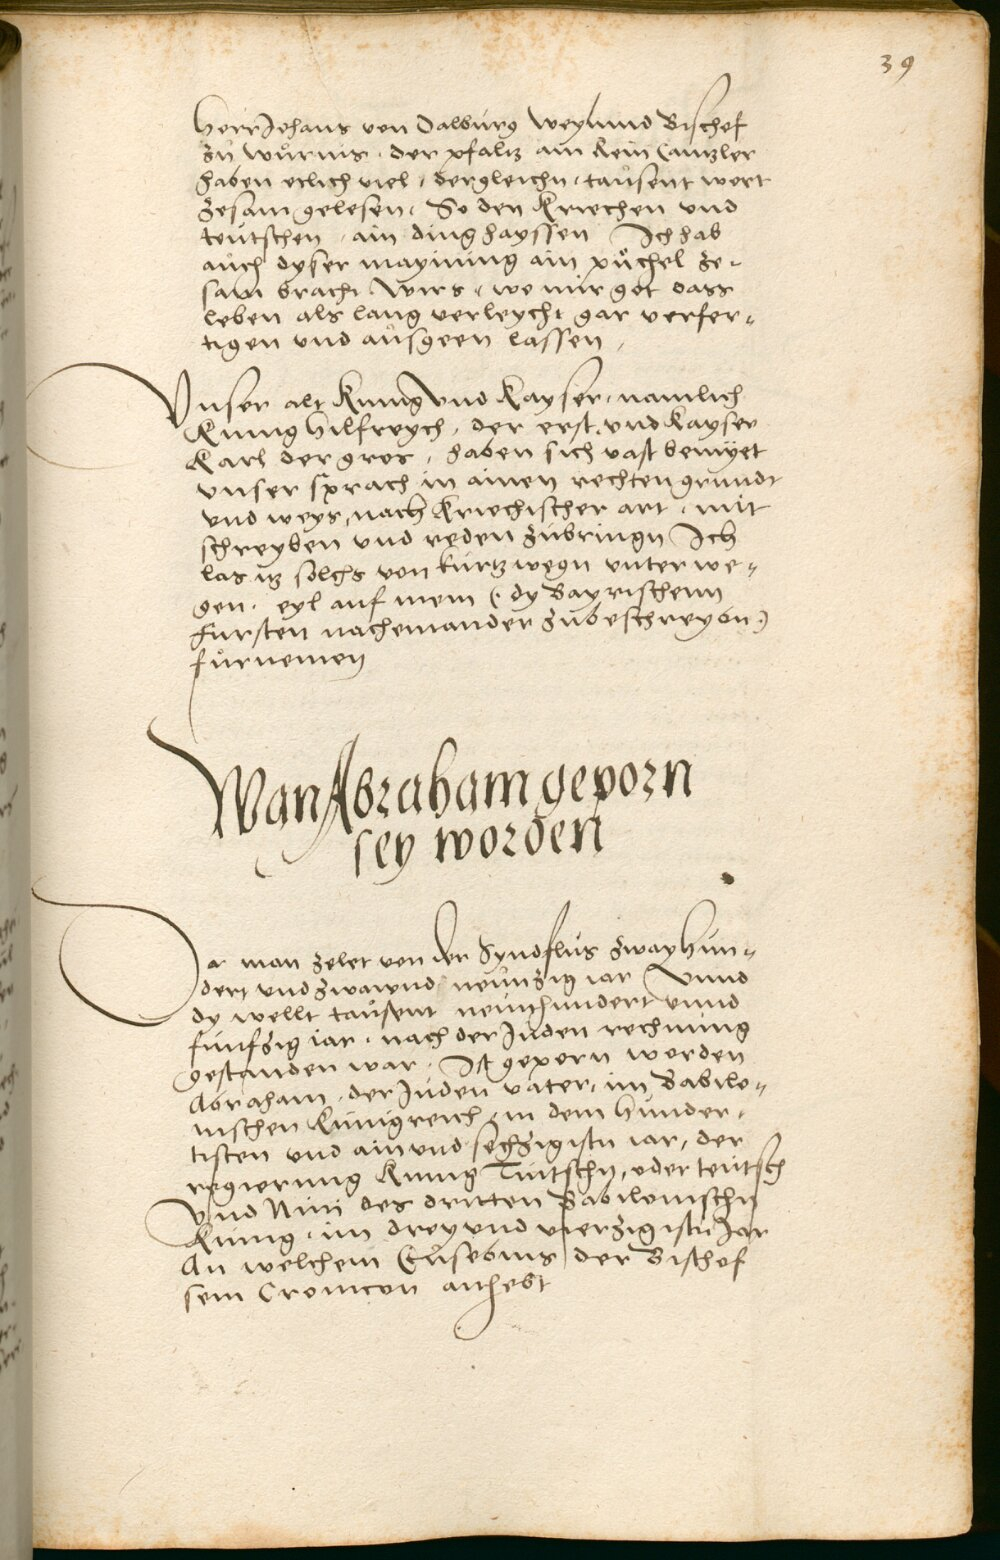 39
Herr Johans von Dalburg weylund Bischof
zu wurms, der pfaltz am Rein Cantzler
haben etlich viel, dergleichn, tausent wort
zesam gelesen, So den Kriechen und
teutschen, ain ding hayssen Ich hab
auch dyser maynung ain půchel ze-
sam bracht. Wirs, wo mir got dass
leben als lang verleycht gar verfer-
tigen und ausgeen lassen,
Unser alt Kunig Und Kayser, namlich
Kunig Hilfreych, der erst und Kayser
Karl der gros, haben sich vast bemüet
unser sprach in ainen rechten grundt
und weys, nach Kriechischer art, mit
schreyben und reden zubringn Ich
las itz solchs von kurtz wegn unterwe-
gen. eyl auf mein (dy Bayrischenn
Fursten nacheinander zubeschreybn)
fůrnemen
Wan Abraham geporn
sey worden
Da man zelet von der Syndflus zway Hun-
dert und zwaynd neunzig iar Unnd
dy wellt tausent neunhundert unnd
funfzig iar, nach der Juden rechnung
gestanden war. Ist geporn worden
Abraham, der Juden vater, im Babilo-
nischen Kunigreich, in dem Hunder-
tisten und ain und sechzigistn iar, der
regierung Kunig Tuitschn, oder teutsch
Und Nini des dritten Babilonischn
Kunig, im drey und vierzigistn Jar
An welchem Eusebius der Bischof
sein Cronicon anhebt